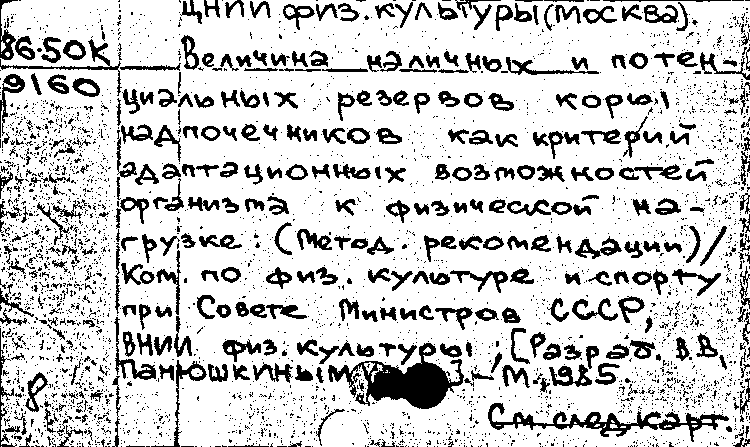 ЦНИИ физ. культуры (Москва).
86-50К Величина наличных и потен-
9160 циальных резервов коры
надпочечников как критерий
адаптационных возможностей
организма к физической на-
грузке : (Метод. рекомендации) /
Ком. по физ. культуре и спорту
при Совете Министров СССР,
ВНИИ физ. культуры ; [Разраб. В.В.
Панюшкиным ]. – М., 1985.
8
См. след. карт.